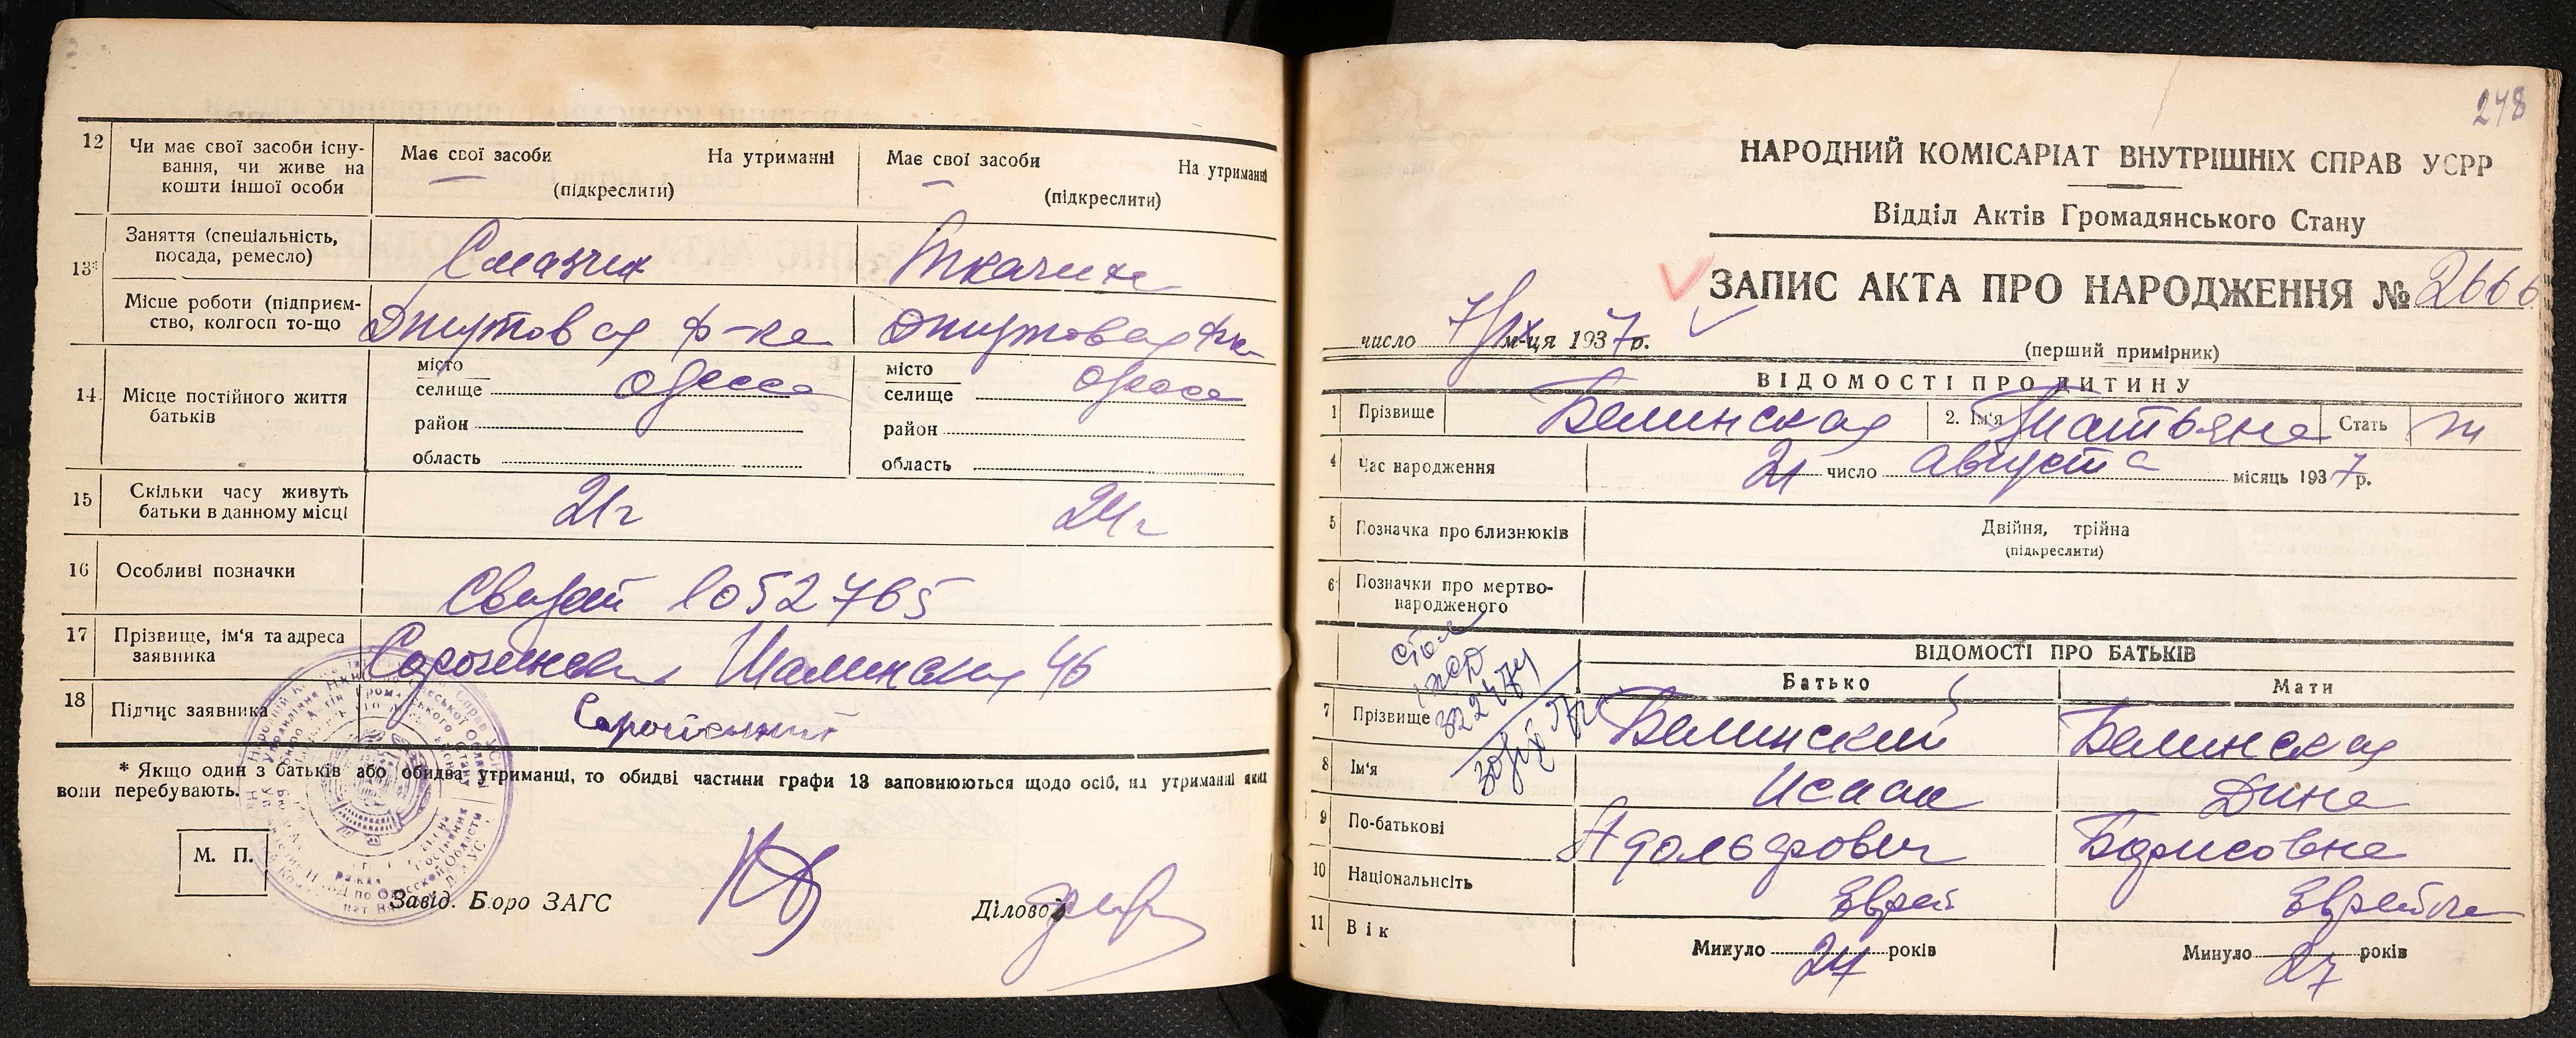 12 Чи має свої засоби існу-
вання, чи живе на
кошти іншої особи
Має свої засоби На утриманні
(підкреслити)
Має свої засоби На утриманні
(підкреслити)
13* Заняття (спеціальність,
посада, ремесло)
Смазчик Ткачиха
Місце роботи (підприєм-
ство, колгосп то-що
Джутовая ф-ка Джутовая ф-ка
14 Місце постійного життя
батьків
місто
селище Одесса
район
область
місто
селище Одесса
район
область
15 Скільки часу живуть
батьки в данному місці
21 г 24 г
16 Особливі позначки
1052765
17 Прізвище, ім'я та адреса
заявника
46
18 Підпис заявника
* Якщо один з батьків або обидва утриманці, то обидві частини графи 13 заповнюються щодо осіб, на утриманні яких
вони перебувають.
М. П.
Завід. Бюро ЗАГС
Діловод
248
НАРОДНИЙ КОМІСАРІАТ ВНУТРІШНІХ СПРАВ УСРР
Відділ Актів Громадянського Стану
ЗАПИС АКТА ПРО НАРОДЖЕННЯ № 2666
число 7/IX м-ця 1937р.
(перший примірник)
ВІДОМОСТІ ПРО ДИТИНУ
1 Прізвище Белинская 2. Ім'я Татьяна Стать ж
4 Час народження 21 число Августа місяць 1937р.
5 Позначка про близнюків
Двійня, трійна
(підкреслити)
6 Позначки про мертво-
народженого
ВІДОМОСТІ ПРО БАТЬКІВ
Батько Мати
7 Прізвище Белинский Белинская
8 Ім'я Исаак Дина
9 По-батькові Адольфович Борисовна
10 Національнсіть Еврей Еврейка
11 Вік
Минуло 24 років
Минуло 27 років